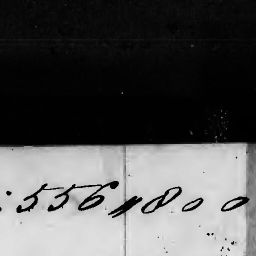 : 556 〃 8 0 0